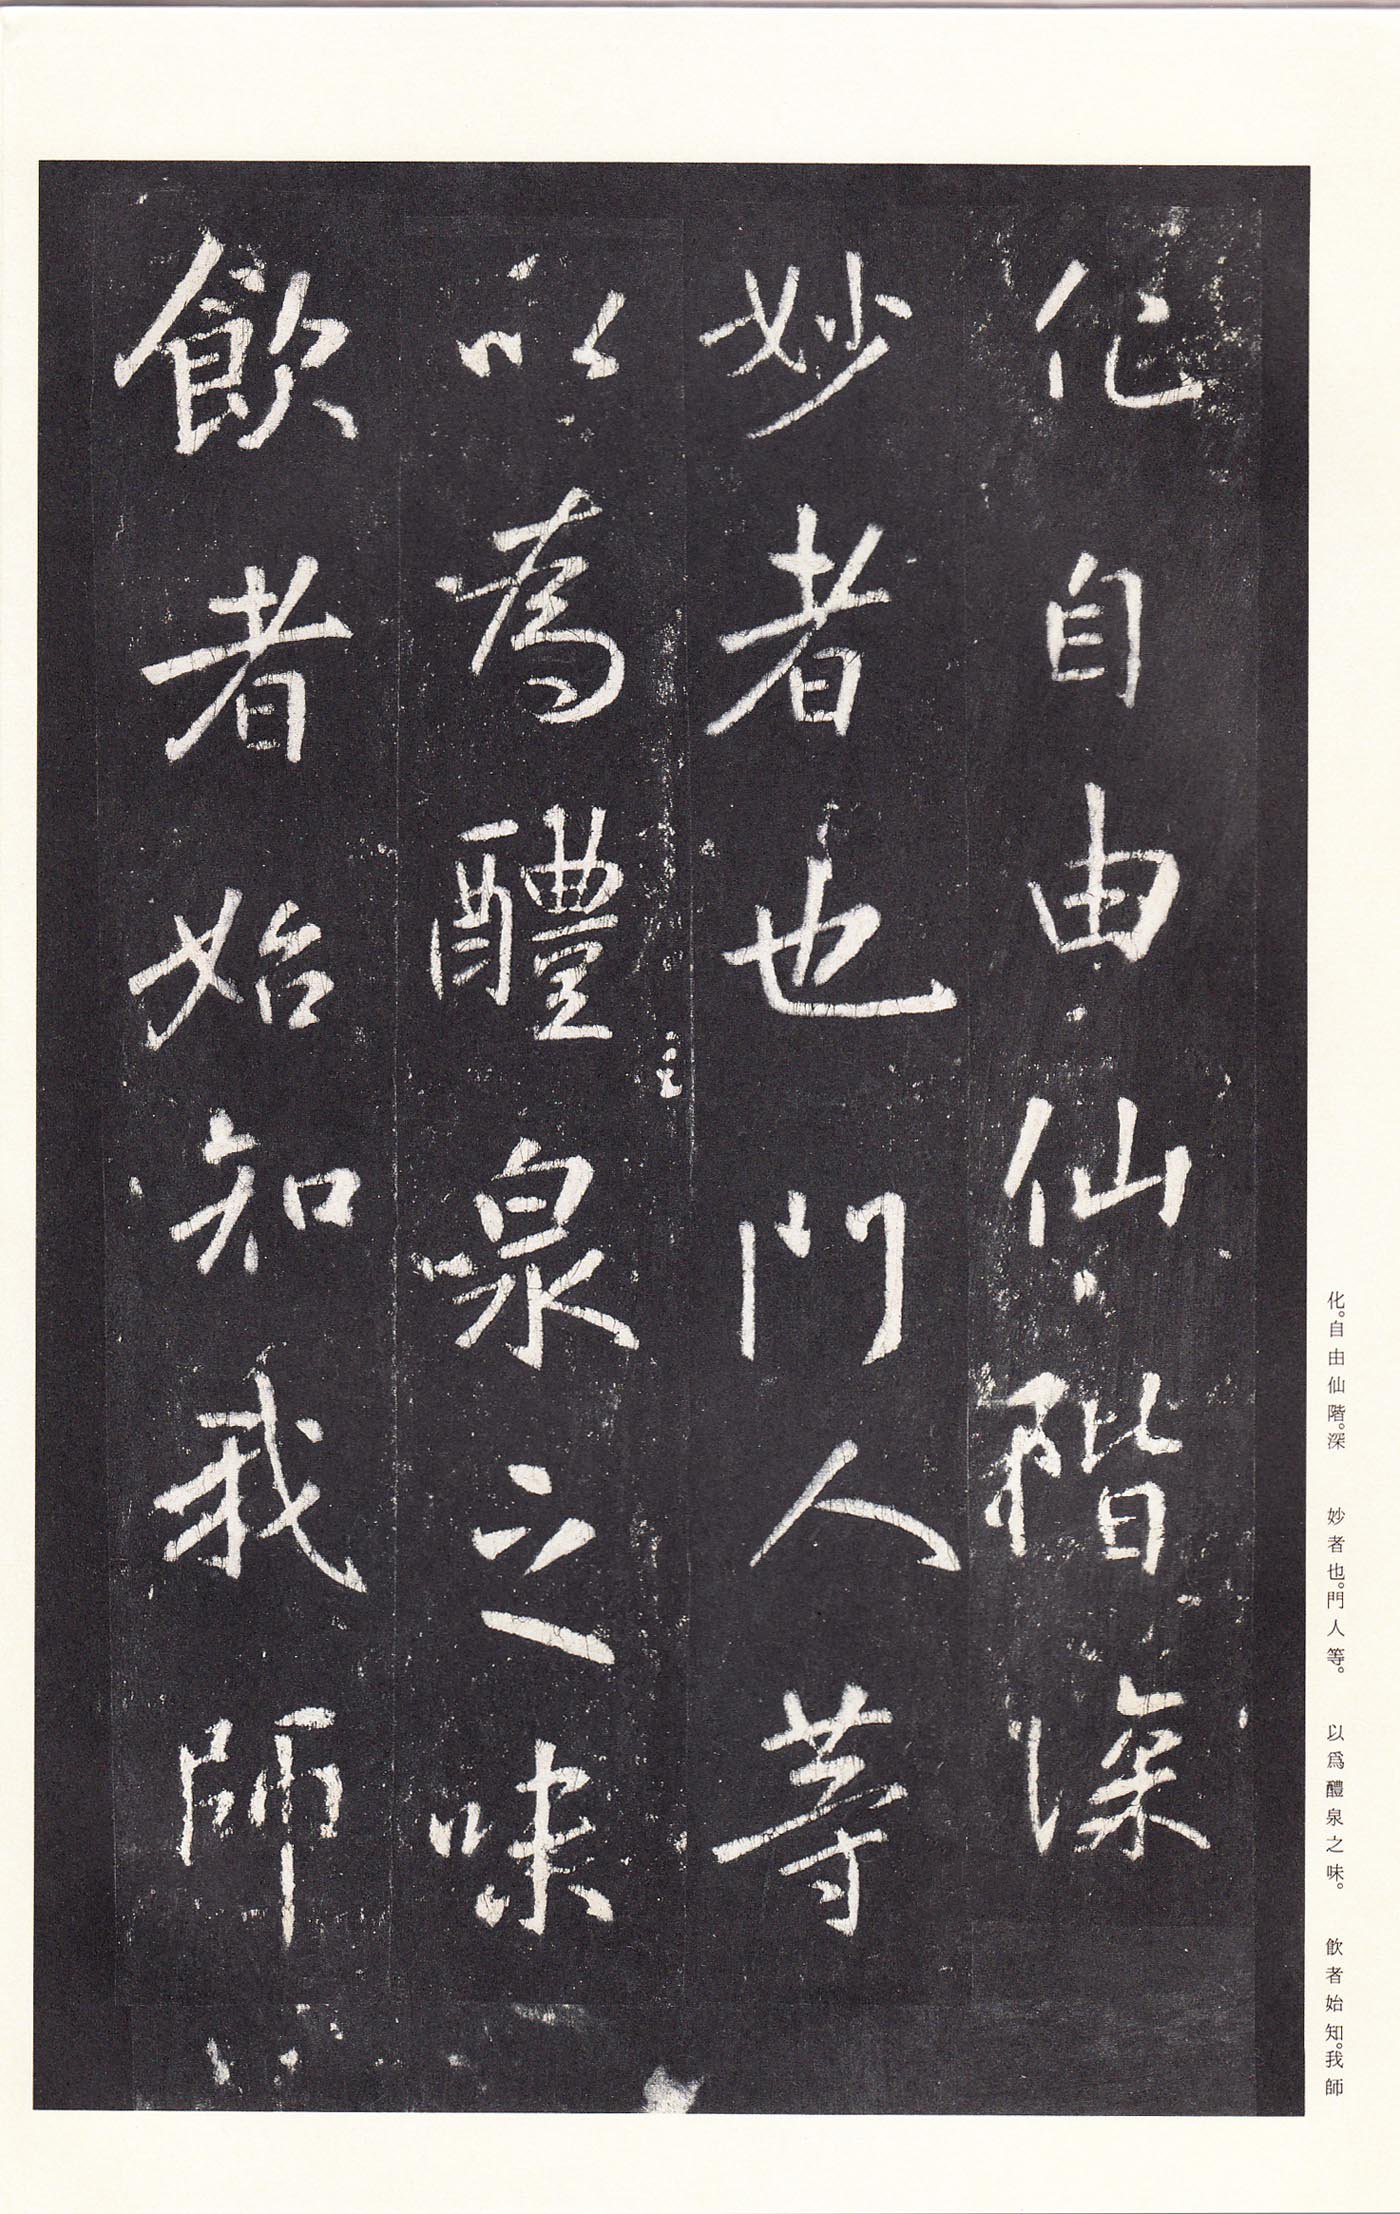 化自由仙階深
妙者也門人等
以為醴泉之味
飲者始知我師
化。自由仙階。深　妙者也。門人等。　以爲醴泉之味。　飮者始知。我師